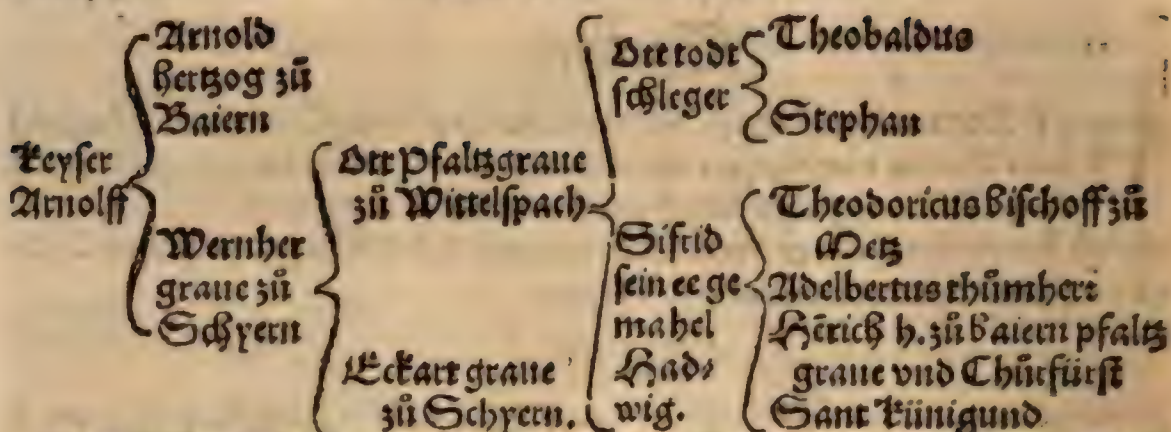 Keyser
Arnolff
Arnold
hertzog zů
Baiern
Wernher
graue zů
Schyern
Ott Pfaltzgraue
zů Wittelspach
Eckart graue
zů Schyern.
Ott todt
schleger
Sifrid
sein ee ge
mahel
Had⸗
wig.
Theobaldus
Stephan
Theodoricus Bischoff zů
Metz
Adelbertus thůmherr
Hērich h. zů Baiern pfaltz
graue vnd Chůrfürst
Sant Künigund